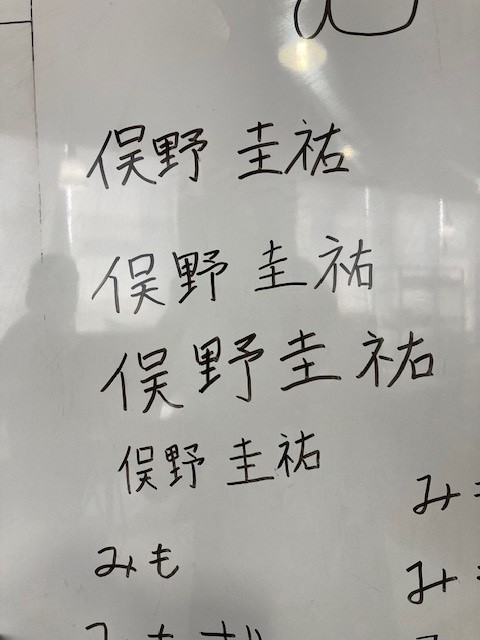 俣野 圭祐
俣野 圭祐
俣野 圭祐
俣野 圭祐
み
みも
み